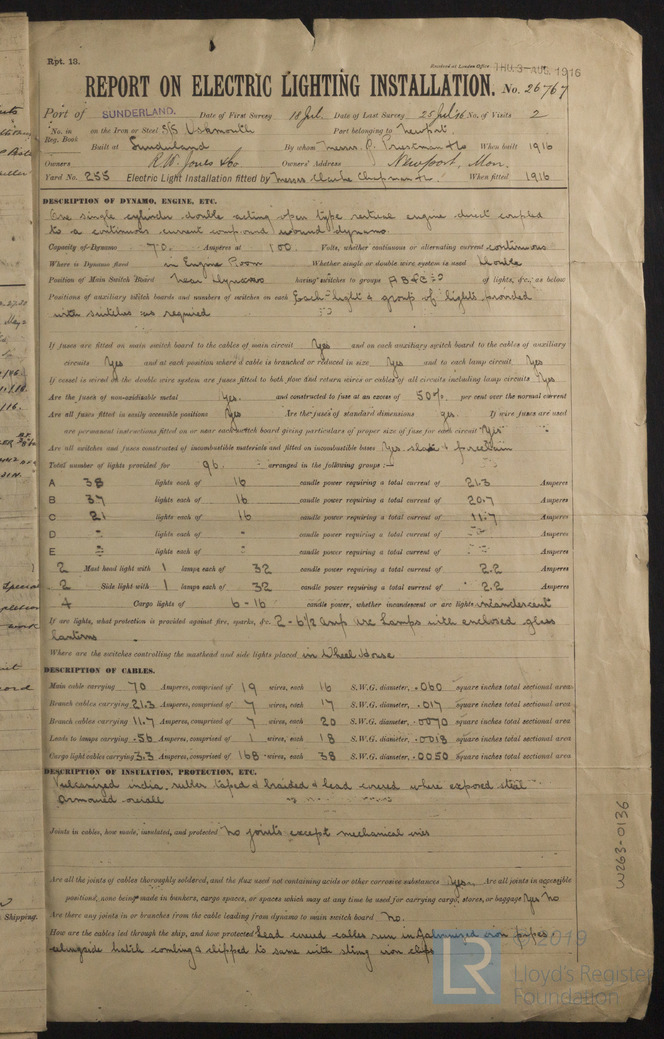 Rpt. 13.
Received at London Office THU. 3-AUG. 1916
REPORT ON ELECTRIC LIGHTING INSTALLATION. No. 26767
Port of SUNDERLAND. Date of First Survey 18 Jul. Date of Last Survey 25 Jul 16 No. of Visits 2
No. in Reg. Book on the Iron or Steel S/S Uskmouth Port belonging to Newport
Built at Sunderland By whom Messrs J. Priestman & Co When built 1916
Owners R. W. Jones & Co Owners' Address Newport, Mon.
Yard No. 255 Electric Light Installation fitted by Messrs Clarke Chapman & Co. When fitted 1916
DESCRIPTION OF DYNAMO, ENGINE, ETC.
One single cylinder double acting open type vertical engine direct coupled
to a continuous current compound wound dynamo
Capacity of Dynamo 70. Amperes at 100. Volts, whether continuous or alternating current continuous
Where is Dynamo fixed in Engine Room Whether single or double wire system is used double
Position of Main Switch Board near Dynamo having switches to groups A B & C of lights, &c., as below
Positions of auxiliary switch boards and numbers of switches on each Each light & group of lights provided
with switches as required
If fuses are fitted on main switch board to the cables of main circuit Yes and on each auxiliary switch board to the cables of auxiliary
circuits Yes and at each position where a cable is branched or reduced in size Yes and to each lamp circuit Yes
If vessel is wired on the double wire system are fuses fitted to both flow and return wires or cables of all circuits including lamp circuits Yes
Are the fuses of non-oxidizable metal Yes. and constructed to fuse at an excess of 50%. per cent over the normal current
Are all fuses fitted in easily accessible positions Yes Are the fuses of standard dimensions yes. If wire fuses are used
are permanent instructions fitted on or near each switch board giving particulars of proper size of fuse for each circuit Yes
Are all switches and fuses constructed of incombustible materials and fitted on incombustible bases Yes slate & porcelain
Total number of lights provided for 96 arranged in the following groups :—
A 38 lights each of 16 candle power requiring a total current of 21.3 Amperes
B 37 lights each of 16 candle power requiring a total current of 20.7 Amperes
C 21 lights each of 16 candle power requiring a total current of 11.7 Amperes
D - lights each of - candle power requiring a total current of - Amperes
E - lights each of - candle power requiring a total current of - Amperes
2 Mast head light with 1 lamps each of 32 candle power requiring a total current of 2.2 Amperes
2 Side light with 1 lamps each of 32 candle power requiring a total current of 2.2 Amperes
4 Cargo lights of 6-16 candle power, whether incandescent or arc lights incandescent
If arc lights, what protection is provided against fire, sparks, &c. 2 - 6½ amp arc Lamps with enclosed glass
lanterns
Where are the switches controlling the masthead and side lights placed in Wheel House
DESCRIPTION OF CABLES.
Main cable carrying 70 Amperes, comprised of 19 wires, each 16 S.W.G. diameter, .060 square inches total sectional area
Branch cables carrying 21.3 Amperes, comprised of 7 wires, each 17 S.W.G. diameter, .017 square inches total sectional area
Branch cables carrying 11.7 Amperes, comprised of 7 wires, each 20 S.W.G. diameter, .0070 square inches total sectional area
Leads to lamps carrying .56 Amperes, comprised of 1 wires, each 18 S.W.G. diameter, .0018 square inches total sectional area
Cargo light cables carrying 3.3 Amperes, comprised of 168 wires, each 38 S.W.G. diameter, .0050 square inches total sectional area
DESCRIPTION OF INSULATION, PROTECTION, ETC.
Vulcanized india rubber taped & braided & lead covered where exposed steel
armoured overall
Joints in cables, how made, insulated, and protected No joints except mechanical ones
Are all the joints of cables thoroughly soldered, and the flux used not containing acids or other corrosive substances Yes. Are all joints in accessible
positions, none being made in bunkers, cargo spaces, or spaces which may at any time be used for carrying cargo, stores, or baggage Yes No
Are there any joints in or branches from the cable leading from dynamo to main switch board No.
How are the cables led through the ship, and how protected Lead covered cables run in galvanized iron pipes
alongside hatch coming & clipped to same with strong iron clips
W263-0136
Shipping.
LR
© 2019
Lloyd's Register
Foundation